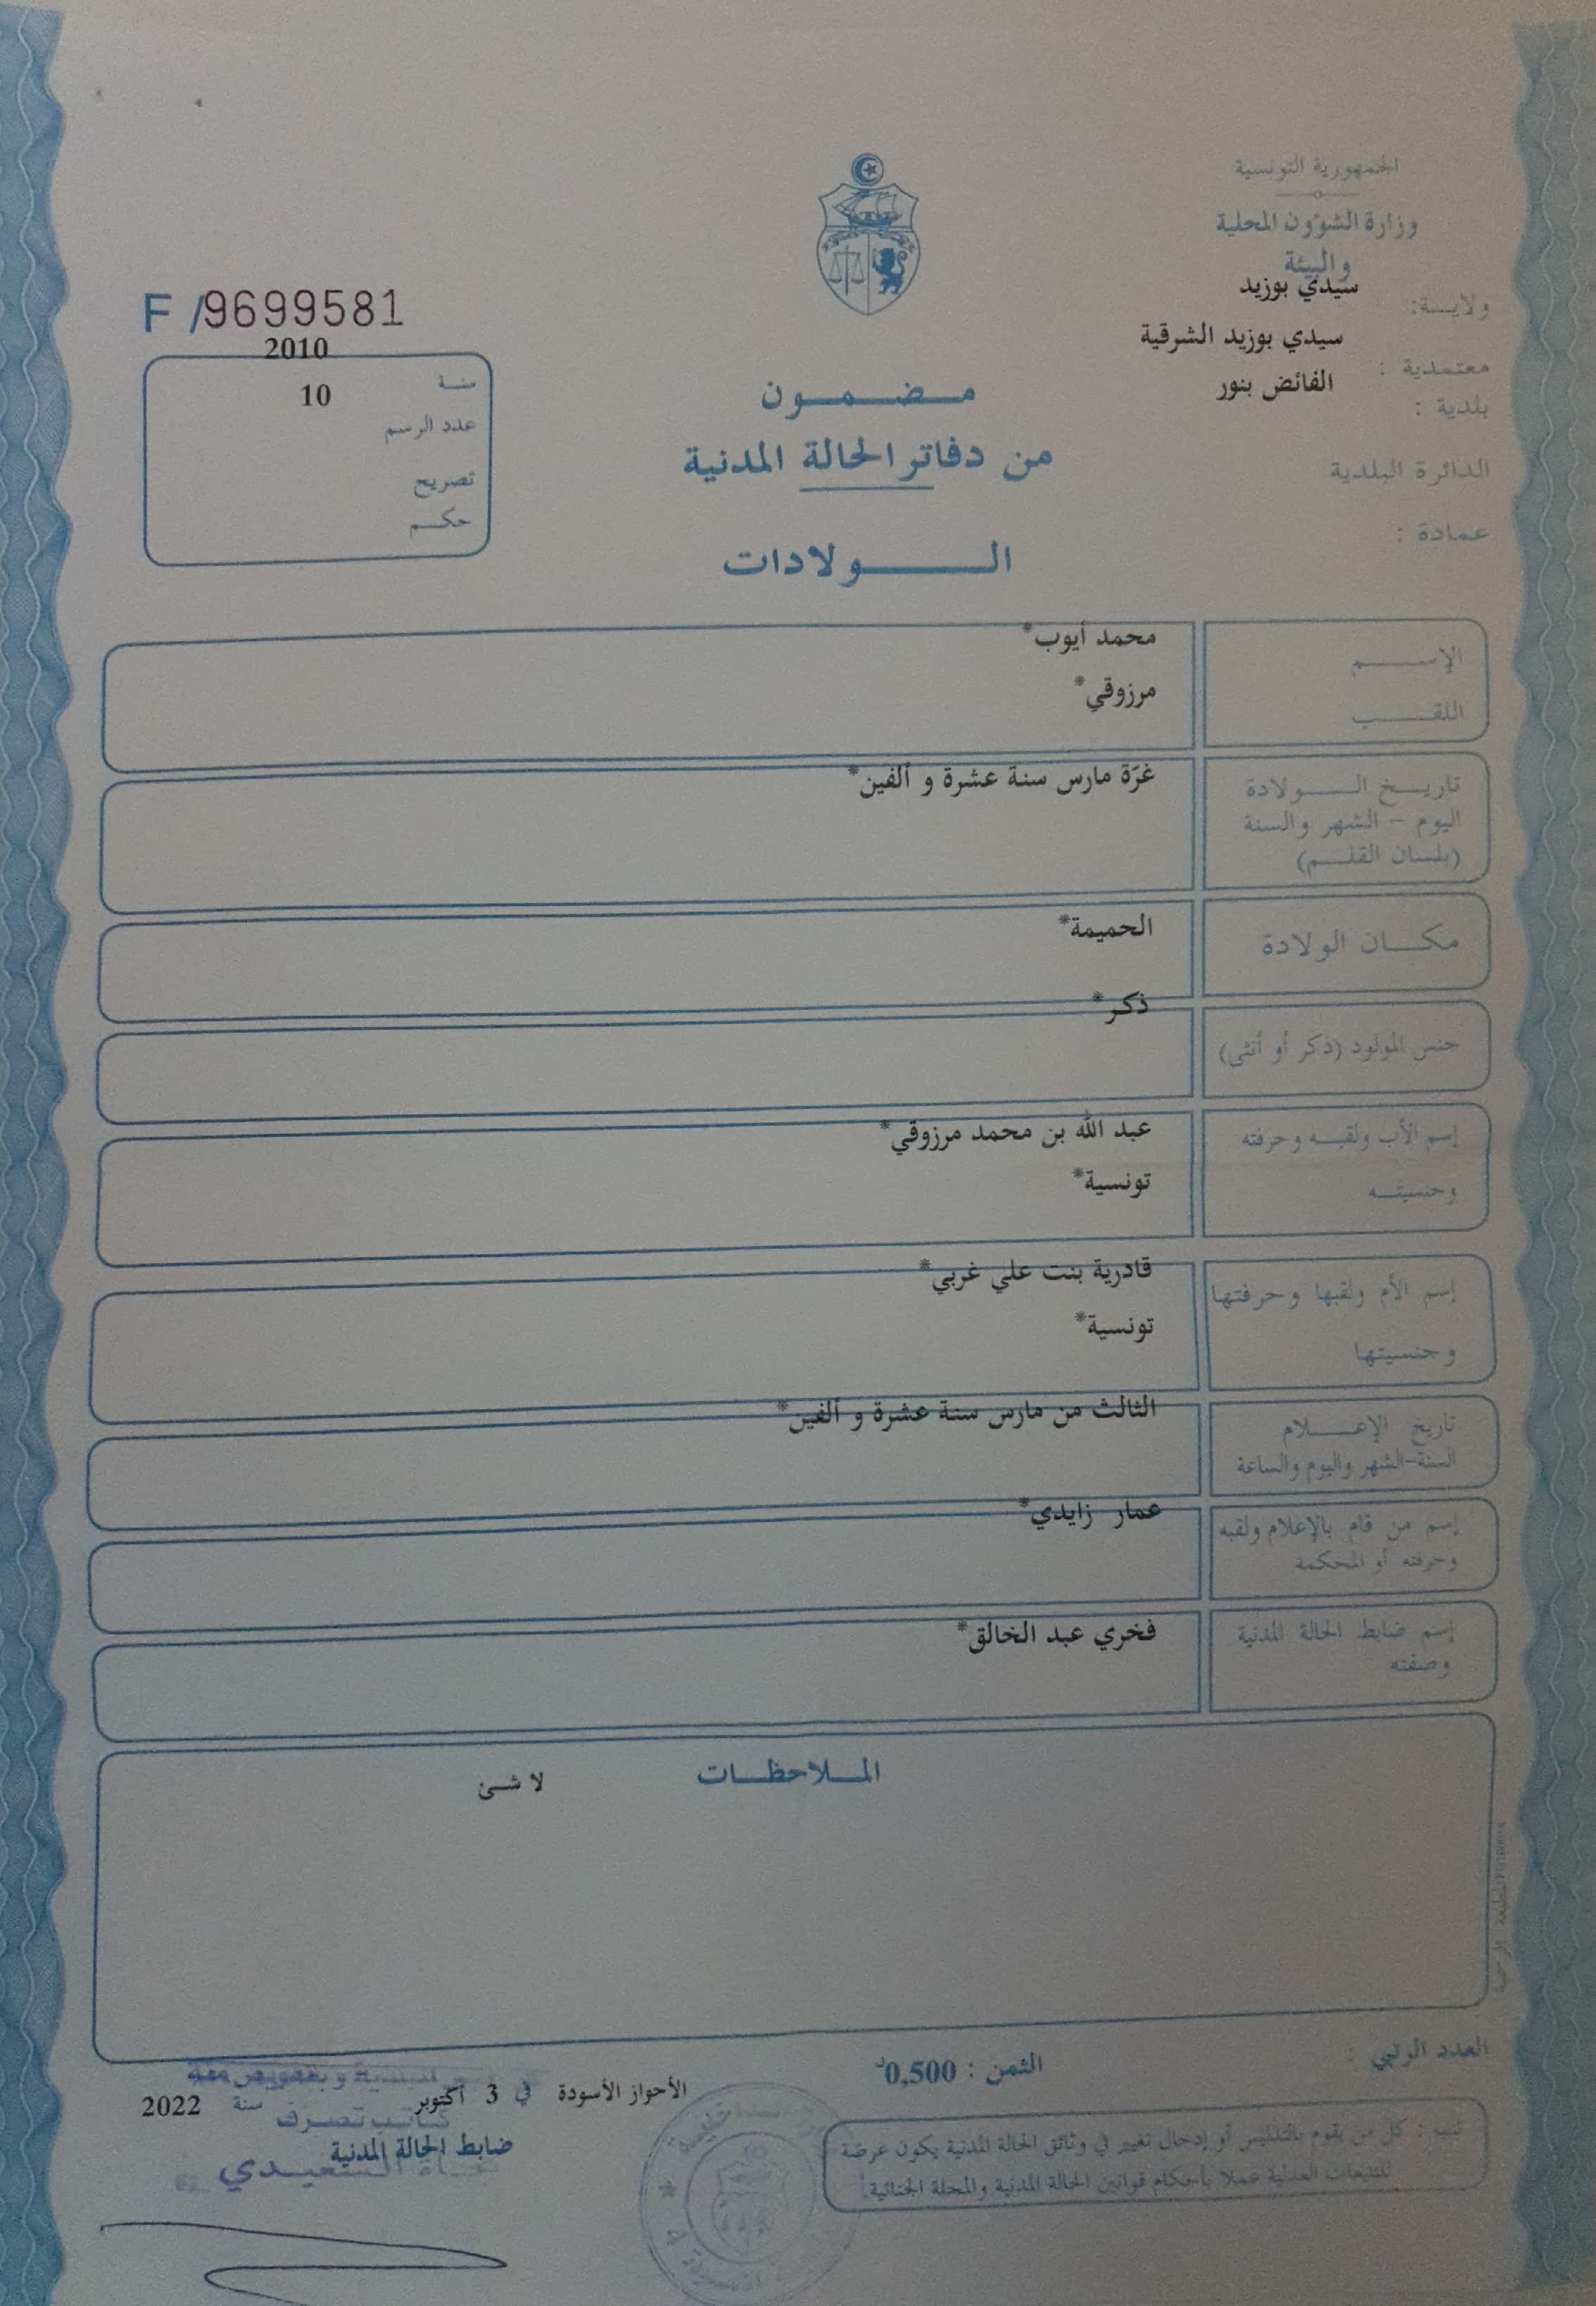 الجمهورية التونسية
وزارة الشؤون المحلية
والبيئة
ولايــة: سيدي بوزيد
معتمدية : سيدي بوزيد الشرقية
بلدية : الفائض بنور
الدائرة البلدية
عمادة :
F /9699581
سنــة 2010
عدد الرسم 10
تصريح
حكــم
مـضـمـون
من دفاتر الحالة المدنية
الـولادات
الإســم محمد أيوب*
اللقــب مرزوقي*
تاريــخ الــولادة غرّة مارس سنة عشرة و ألفين*
اليوم – الشهر والسنة
(بلسان القلــم)
مكــان الولادة الحميمة*
جنس المولود (ذكر أو أنثى) ذكر*
إسم الأب ولقبــه وحرفته عبد الله بن محمد مرزوقي*
وجنسيتــه تونسية*
إسم الأم ولقبها وحرفتها قادرية بنت علي غربي*
وجنسيتها تونسية*
تاريخ الإعــلام الثالث من مارس سنة عشرة و ألفين*
السنة-الشهر واليوم والساعة
إسم من قام بالإعلام ولقبه عمار زايدي*
وحرفته أو المحكمة
إسم ضابط الحالة المدنية فخري عبد الخالق*
وصفته
المـلاحظـات
لا شئ
العدد الرتبي :
الثمن : 0,500د
الأحواز الأسودة في 3 أكتوبر سنة 2022
كاتب تصرف
ضابط الحالة المدنية
السعيدي
تنبيه : كل من يقوم بالتدليس أو إدخال تغيير في وثائق الحالة المدنية يكون عرضة
للتتبعات العدلية عملا بأحكام قوانين الحالة المدنية والمجلة الجنائية.
المطبعة الرسمية